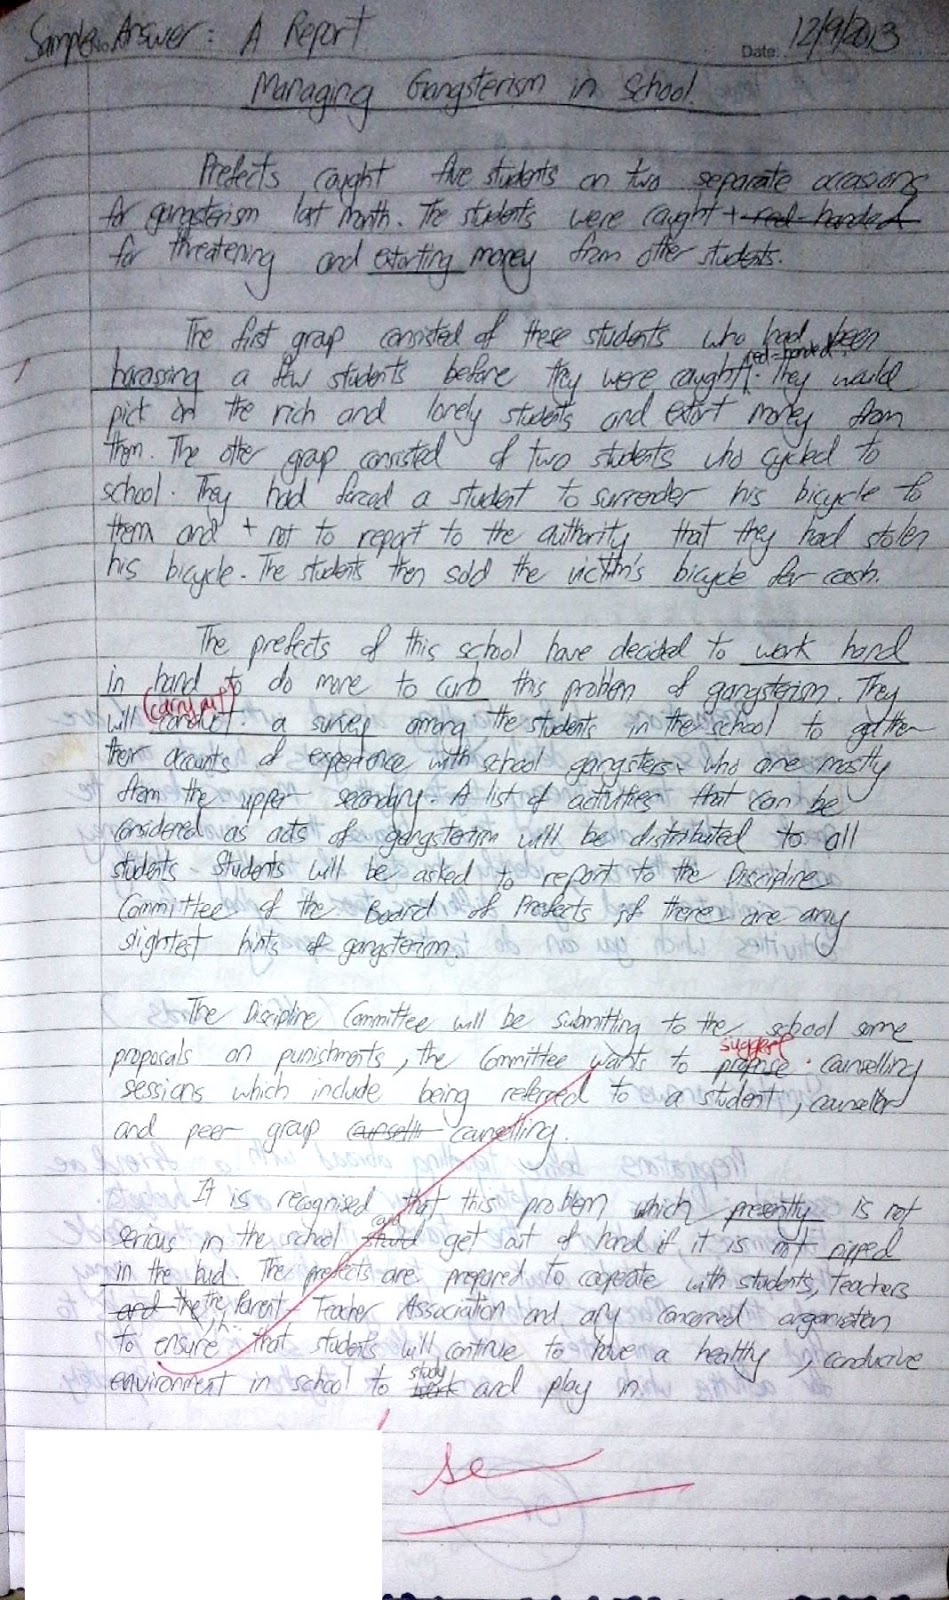 Sample Answer: A Report
No.
Date: 12/9/2013
Managing Gangsterism in School.
Prefects caught five students on two separate occasions
for gangsterism last month. The students were caught + red-handed
for threatening and extorting money from other students.
The first group consisted of these students who had been
harassing a few students before they were caught red-handed. They would
pick on the rich and lonely students and extort money from
them. The other group consisted of two students who cycled to
school. They had forced a student to surrender his bicycle to
them and + not to report to the authority that they had stolen
his bicycle. The students then sold the victim's bicycle for cash.
The prefects of this school have decided to work hand
in hand to do more to curb this problem of gangsterism. They
will conduct (carry out) a survey among the students in the school to gather
their accounts of experience with school gangsters who are mostly
from the upper secondary. A list of activities that can be
considered as acts of gangsterism will be distributed to all
students. Students will be asked to report to the Discipline
Committee of the Board of Prefects if there are any
slightest hints of gangsterism.
The Discipline Committee will be submitting to the school some
proposals on punishments, the Committee wants to propose suggest counselling
sessions which include being referred to a student, counsellor
and peer group counselling.
It is recognised that this problem which presently is not
serious in the school could get out of hand if it is not nipped
in the bud. The prefects are prepared to cooperate with students, teachers
and the the Parent-Teacher Association and any concerned organisation
to ensure that students will continue to have a healthy, conducive
environment in school to work study and play in.